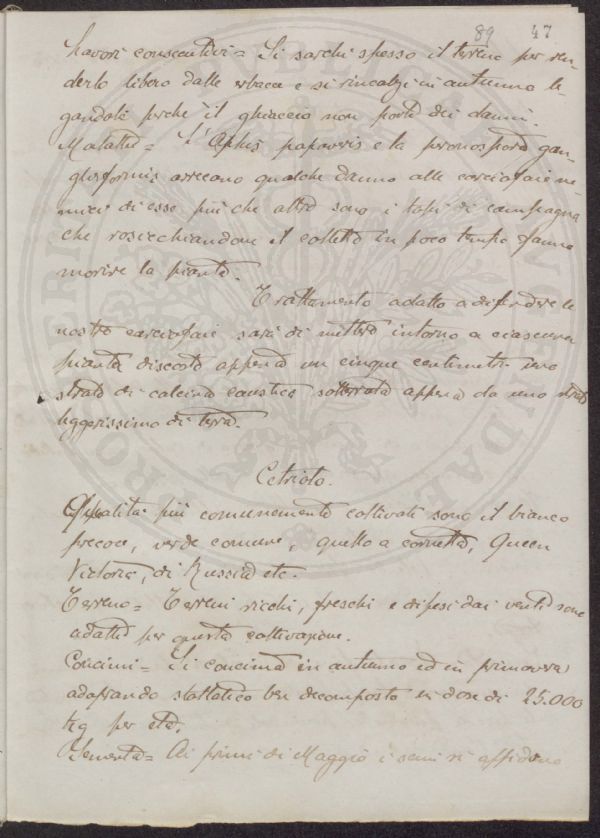 89 47
Lavori consecutivi = Si sarchi spesso il terreno per ren-
derlo libero dalle erbacce e si rincalzi in autunno le-
gandole perchè il ghiaccio non porti dei danni.
Malattie = L'Aphis papaveris e la peronospora gan-
gliiformis arrecano qualche danno alle carciofaie ne-
mici di esse più che altro sono i topi di campagna
che rosicchiandone il colletto in poco tempo fanno
morire la pianta.
Trattamento adatto a difendere le
nostre carciofaie sarà di mettere intorno a ciascuna
pianta discosto appena un cinque centimetri uno
strato di calcina caustica sotterrata appena da uno strato
leggerissimo di terra.
Cetriolo.
Qualità più comunemente coltivate sono il bianco
precoce, verde comune, quello a cornetto, Queen
Victoria, di Russia etc.
Terreno = Terreni ricchi, freschi e difesi dai venti sono
adatti per questa coltivazione.
Concimi = Si concima in autunno ed in primavera
adoprando stallatico ben decomposto in dose di 25.000
kg per etto.
Sementa = Ai primi di Maggio i semi si affidano